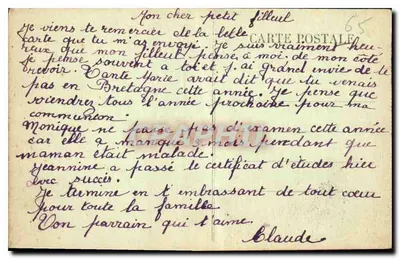 Mon cher petit filleul
65
CARTE POSTALE
Je viens te remercier de la belle
carte que tu m'as envoyé. Je suis vraiment heu-
reux que mon filleul pense à moi. de mon côté
je pense souvent à toi et j'ai grand envie de te
revoir. Tante Marie avait dit que tu venais
pas en Bretagne cette année. Je pense que
viendrez tous l'année prochaine pour ma
communion
Monique ne passe pas d'examen cette année
car elle a manqué mois pendant que
maman était malade.
Jeannine a passé le certificat d'études hier
avec succès.
Je termine en t'embrassant de tout coeur
pour toute la famille
Ton parrain qui t'aime.
Claude